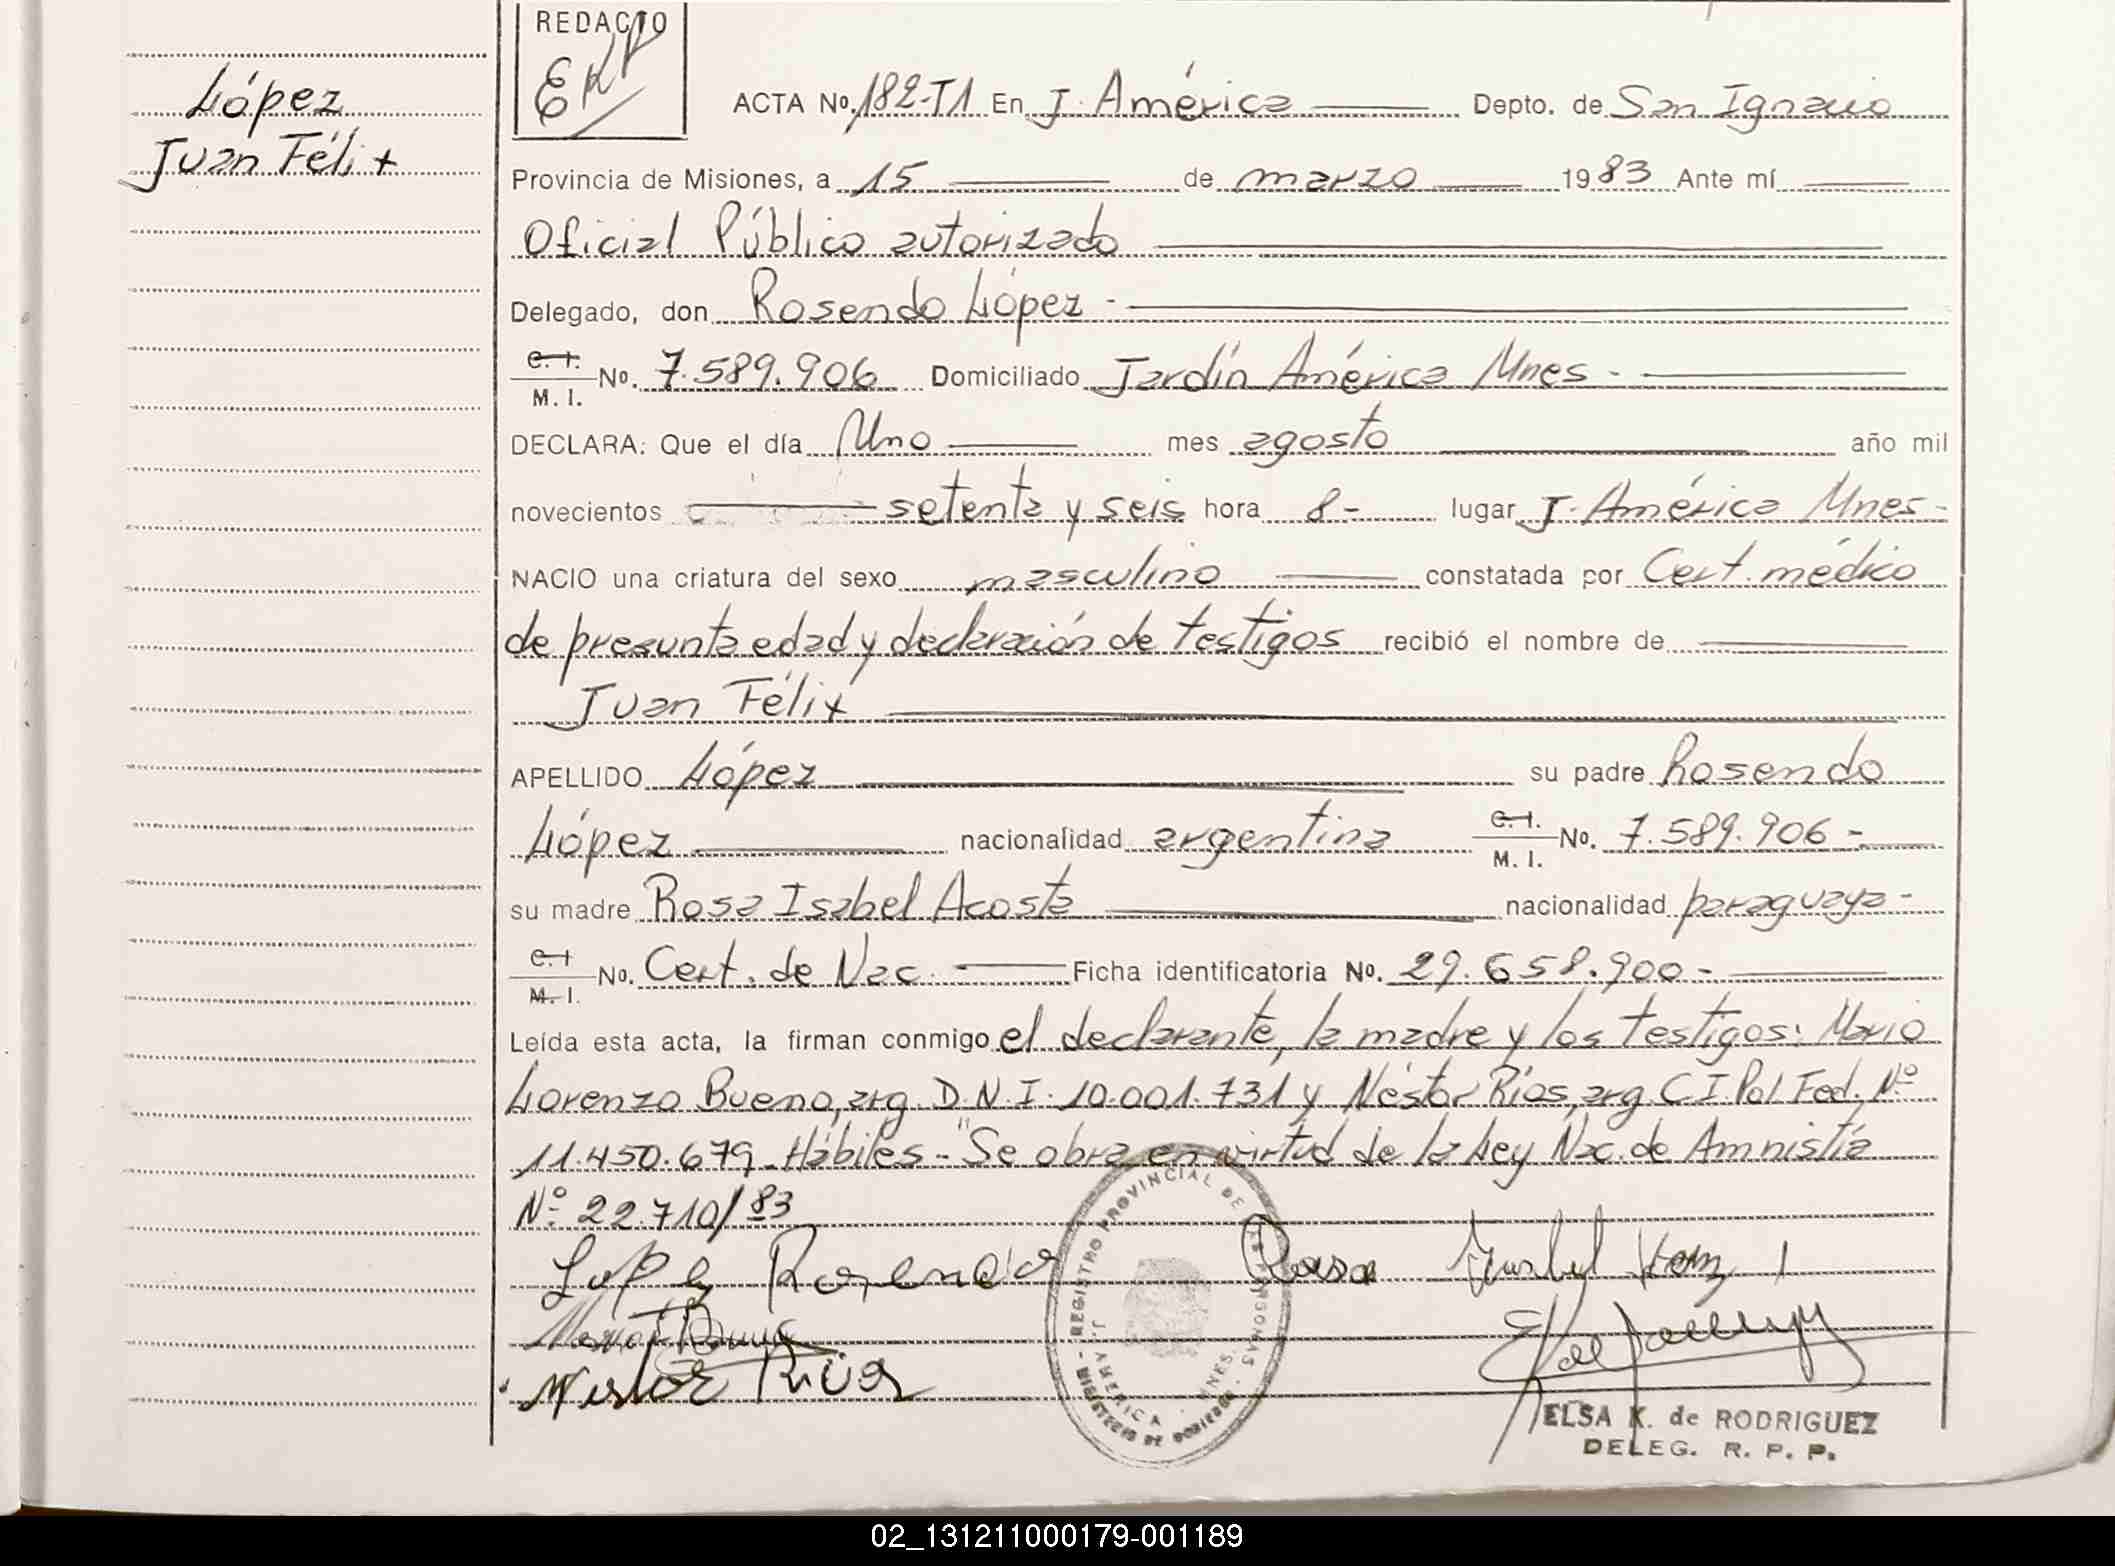 López
Juan Félix
REDACTO
ACTA No. 182-T1 En J. América Depto. de San Ignacio
Provincia de Misiones, a 15 de marzo 1983 Ante mí
Oficial Público autorizado
Delegado, don Rosendo López -
C. I. / M. I. No. 7.589.906 Domiciliado Jardín América Mnes -
DECLARA: Que el día Uno mes agosto año mil
novecientos setenta y seis hora 8 - lugar J. América Mnes -
NACIO una criatura del sexo masculino constatada por Cert. médico
de presunta edad y declaración de testigos recibió el nombre de
Juan Félix
APELLIDO López su padre Rosendo
López nacionalidad argentina C. I. / M. I. No. 7.589.906 -
su madre Rosa Isabel Acosta nacionalidad paraguaya -
C. I / M. I. No. Cert. de Nac. - Ficha identificatoria No. 29.658.900 -
Leída esta acta, la firman conmigo el declarante, la madre y los testigos: Mario
Lorenzo Bueno, arg. D.N.I. 10.001.731 y Néstor Ríos, arg. C.I. Pol. Fed. Nº
11.450.679 - Hábiles - "Se obra en virtud de la Ley Nac. de Amnistía
Nº 22.710/83
Rosendo
Rosa
Nestor Rios
REGISTRO PROVINCIAL DE LAS PERSONAS
J. AMERICA - MNES.
MINISTERIO DE GOBIERNO
ELSA K. de RODRIGUEZ
DELEG. R. P. P.
02_131211000179-001189